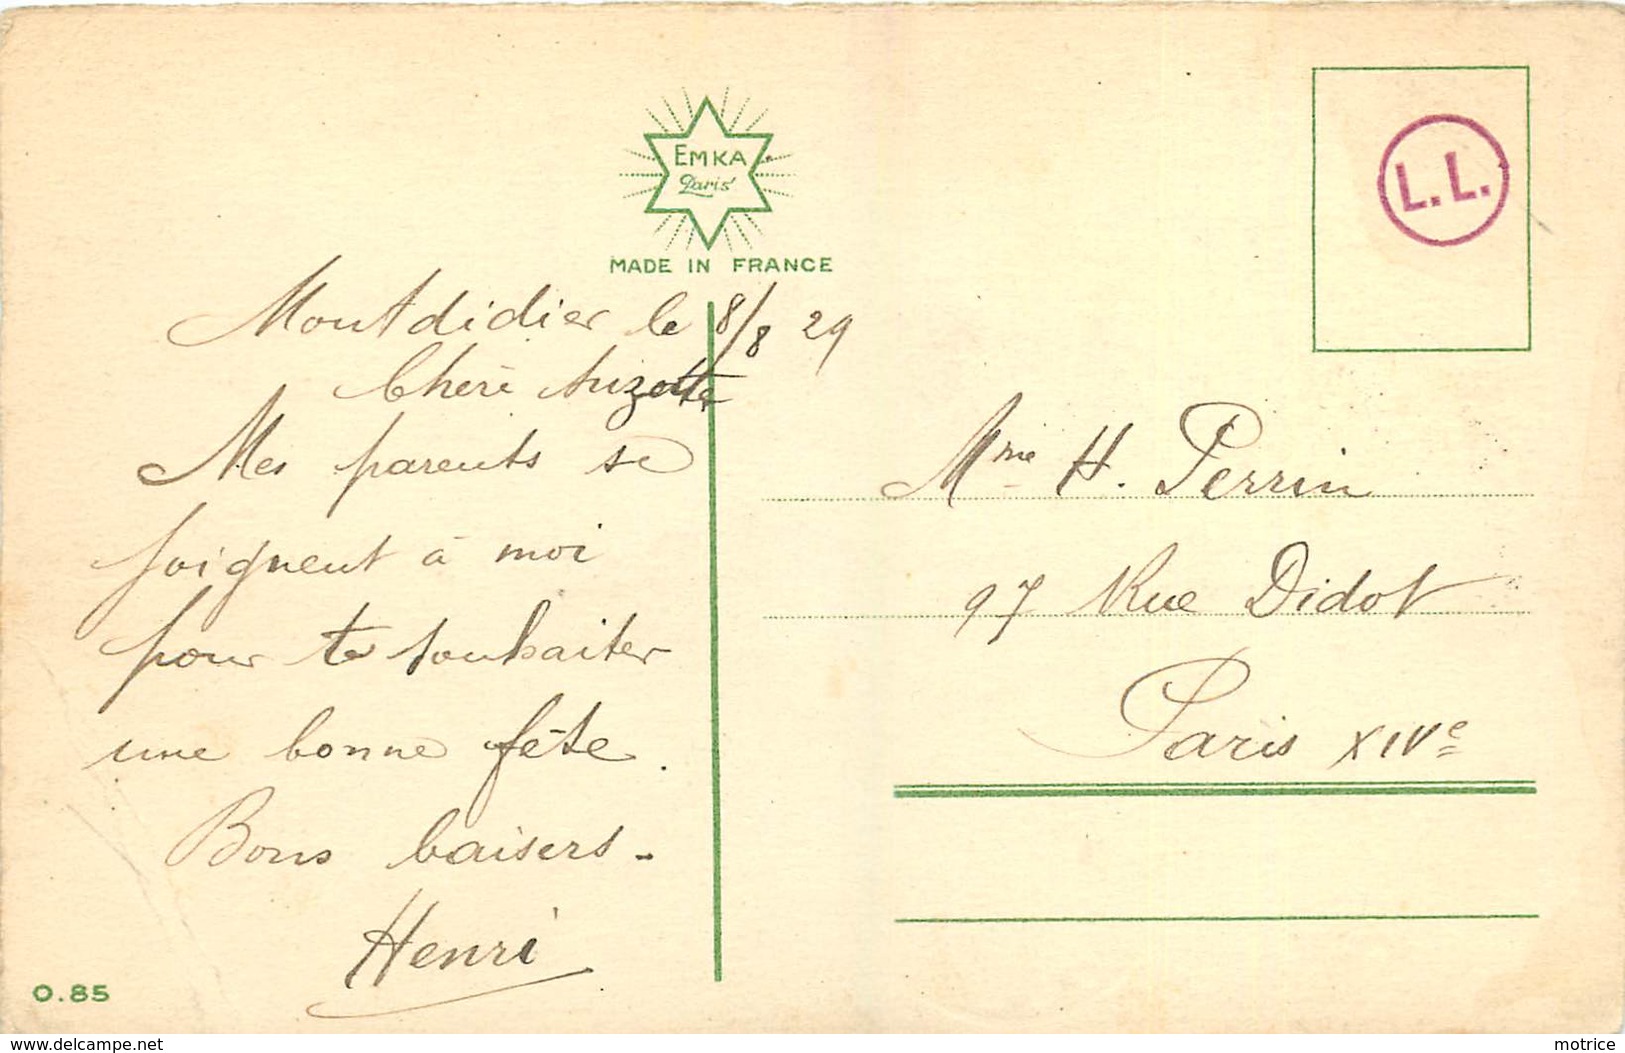 EMKA
Paris
MADE IN FRANCE
L.L.
Montdidier le 8/8 29
Chère Suzette
Mes parents se
joignent à moi
pour te souhaiter
une bonne fête.
Bons baisers.
Henri
O.85
Mme H. Perrin
97 Rue Didot
Paris XIVe
www.delcampe.net
motrice